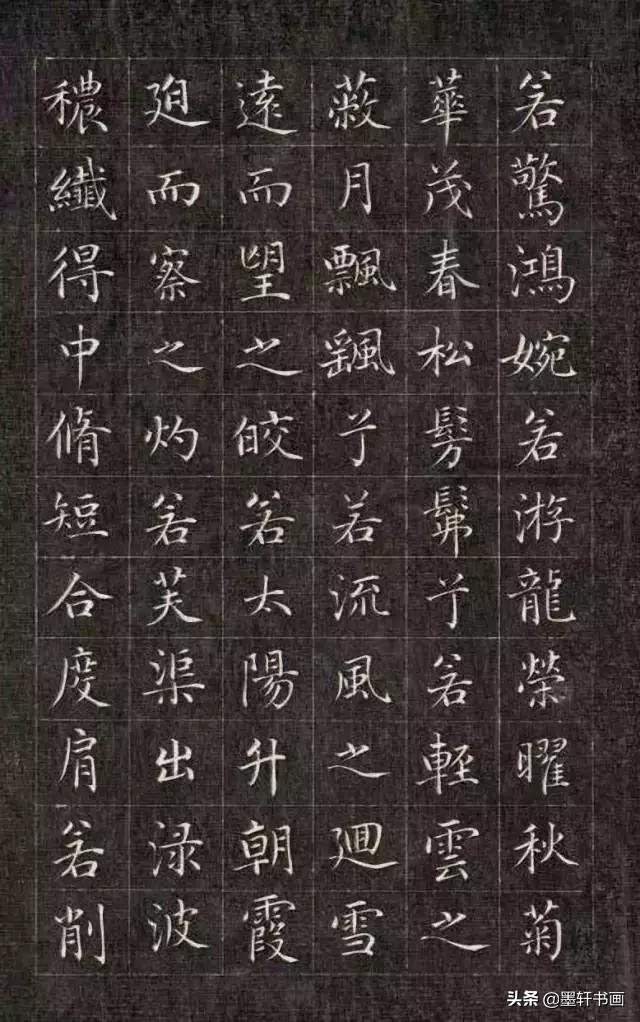 若驚鴻婉若游龍榮曜秋菊
華茂春松髣髴兮若輕雲之
蔽月飄颻兮若流風之迴雪
遠而望之皎若太陽升朝霞
迫而察之灼若芙渠出渌波
穠纖得中脩短合度肩若削
头条 @墨轩书画